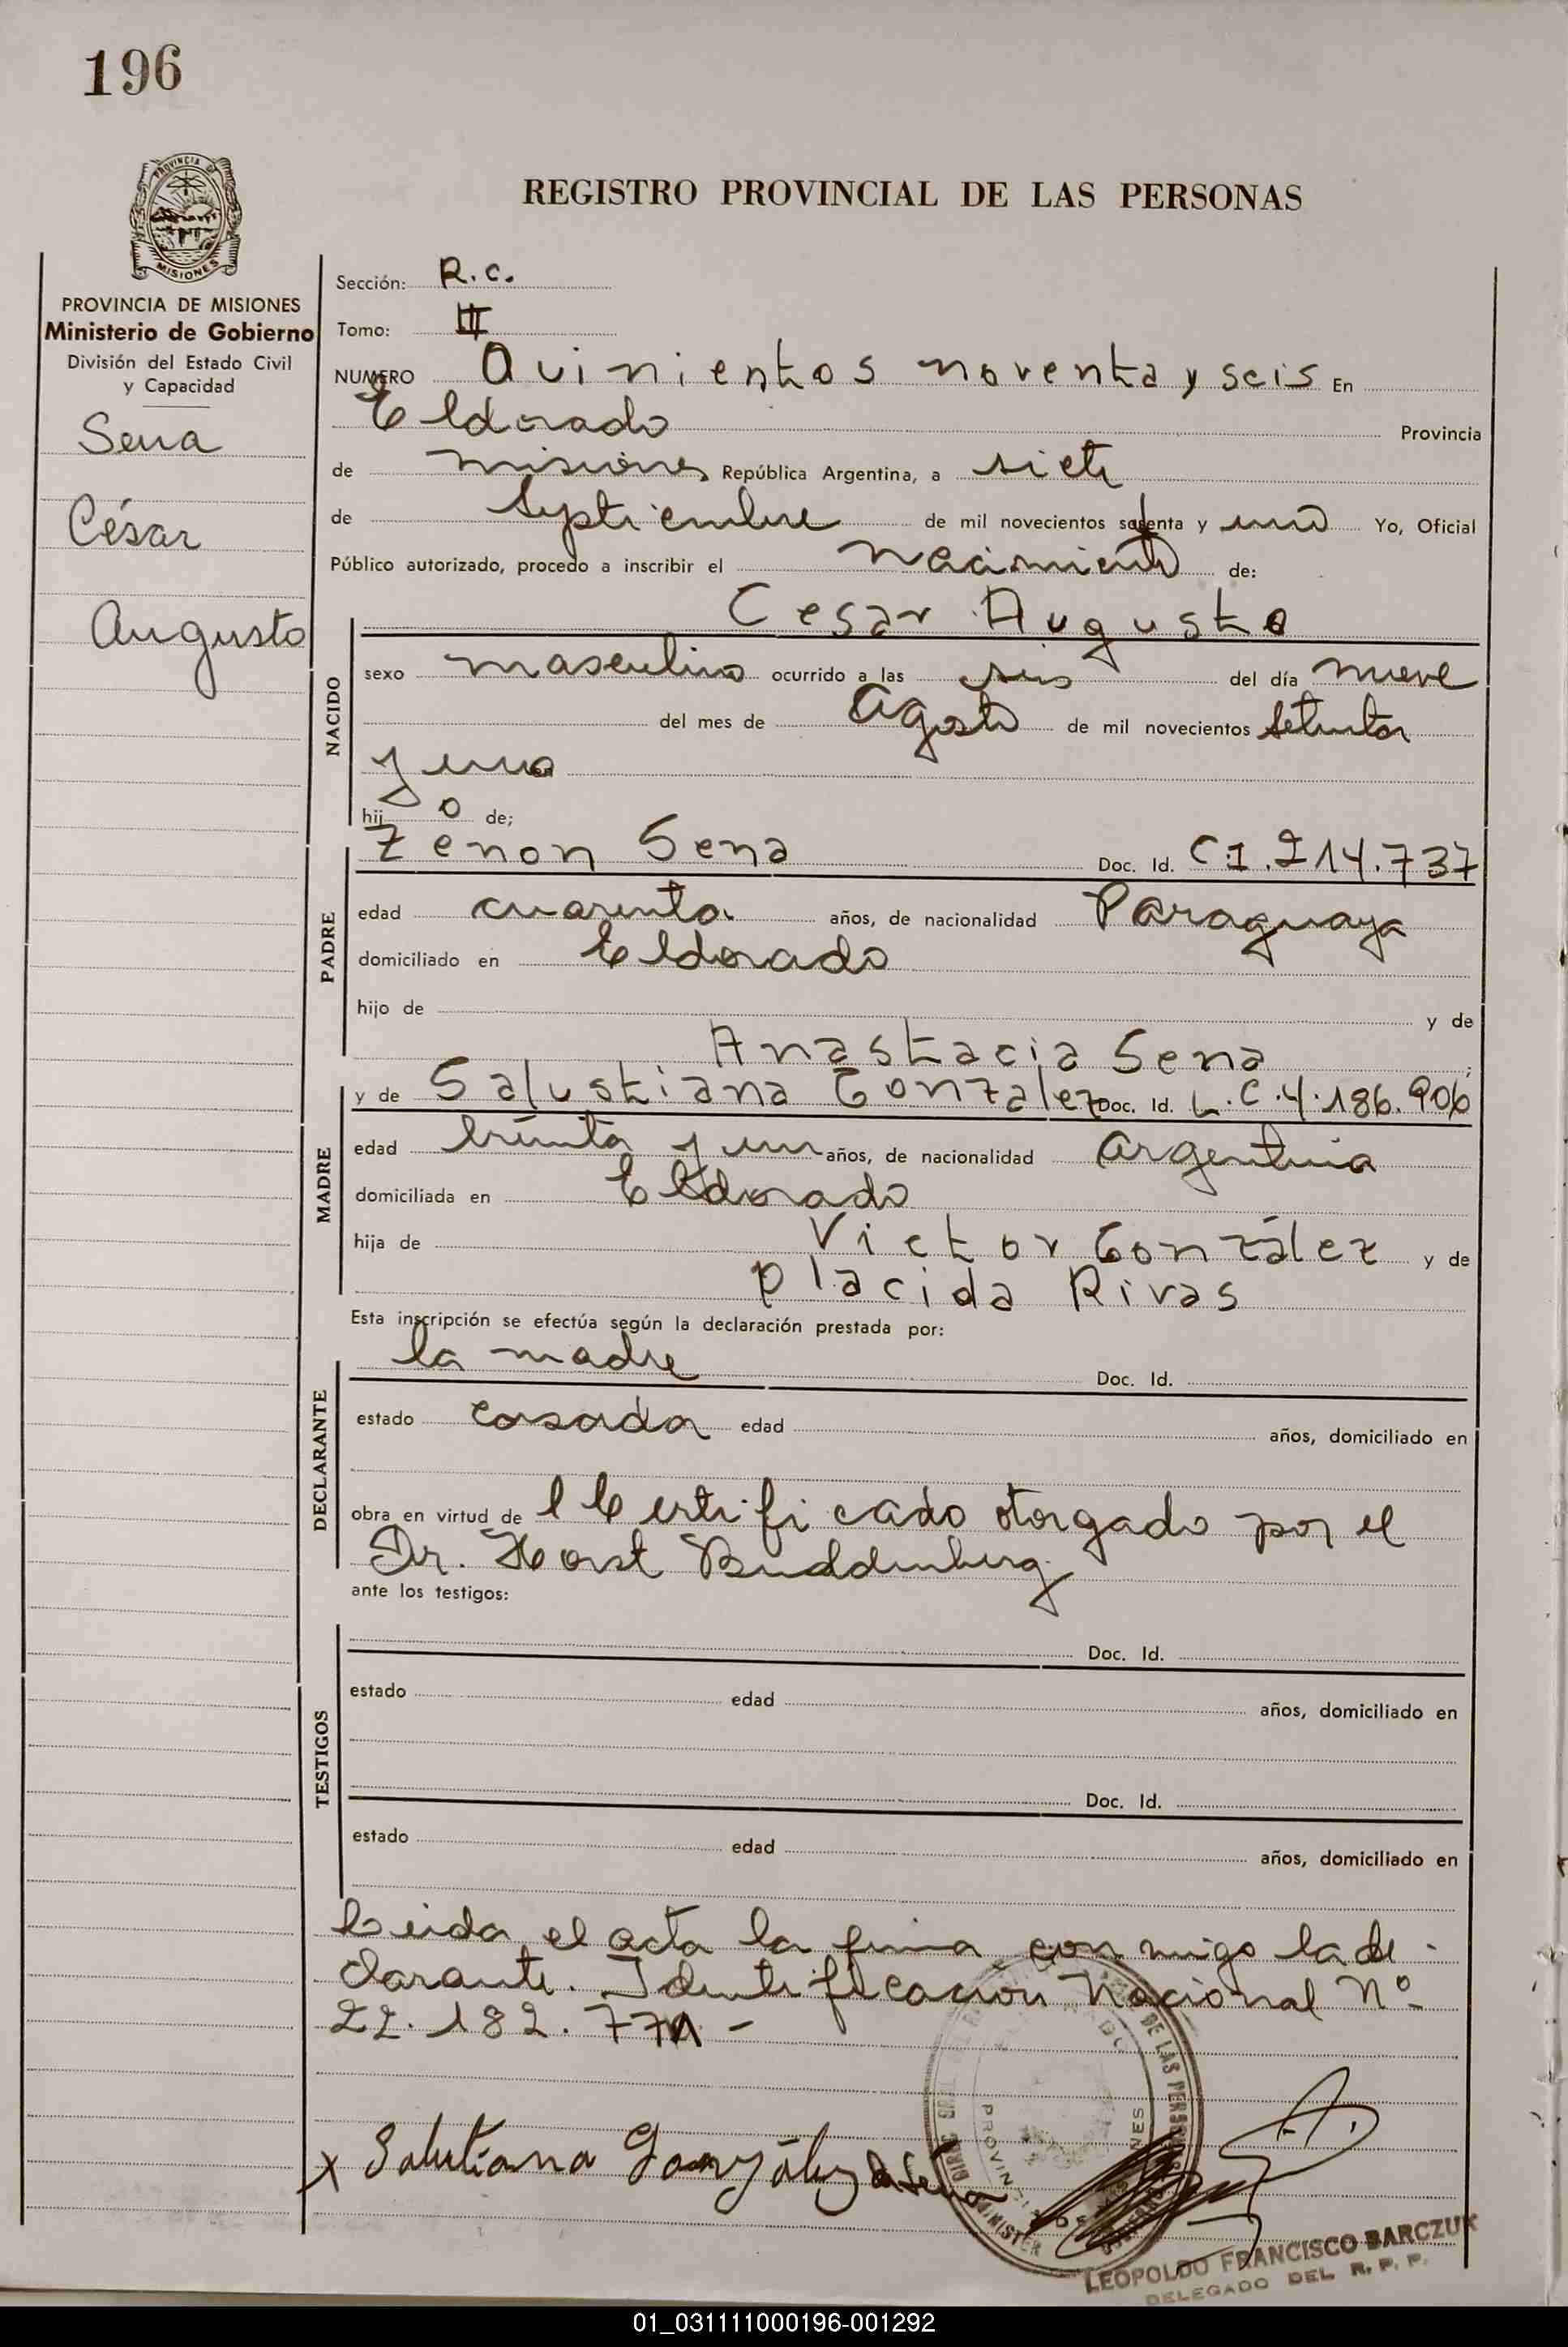 196
PROVINCIA DE
MISIONES
REGISTRO PROVINCIAL DE LAS PERSONAS
PROVINCIA DE MISIONES
Ministerio de Gobierno
División del Estado Civil
y Capacidad
Sena
César
Augusto
Sección: R.C.
Tomo: III
NUMERO Quinientos noventa y seis En
Eldorado Provincia
de misiones República Argentina, a siete
de Septiembre de mil novecientos setenta y uno Yo, Oficial
Público autorizado, procedo a inscribir el nacimiento de:
Cesar Augusto
NACIDO
sexo masculino ocurrido a las seis del día nueve
del mes de Agosto de mil novecientos setenta
y uno en
hijo de;
Zenon Sena Doc. Id. C.I. 214.737
PADRE
edad cuarenta años, de nacionalidad Paraguaya
domiciliado en Eldorado
hijo de y de
Anastacia Sena ;
y de Salustiana Gonzalez Doc. Id. L.C. 4.186.906
MADRE
edad treinta y un años, de nacionalidad argentina
domiciliada en Eldorado
hija de Victor González y de
Placida Rivas
Esta inscripción se efectúa según la declaración prestada por:
la madre Doc. Id.
DECLARANTE
estado casada edad años, domiciliado en
obra en virtud de l Certificado otorgado por el
Dr. Horst Buddenberg
ante los testigos:
Doc. Id.
TESTIGOS
estado edad años, domiciliado en
Doc. Id.
estado edad años, domiciliado en
Leida el acta la firma conmigo la de-
clarante. Identificación Nacional Nº
22.182.771 -
x Salutiana González de Sena
DE LAS PERSONAS
PROVINCIA DE MISIONES
LEOPOLDO FRANCISCO BARCZUK
DELEGADO DEL R. P. P.
01_031111000196-001292